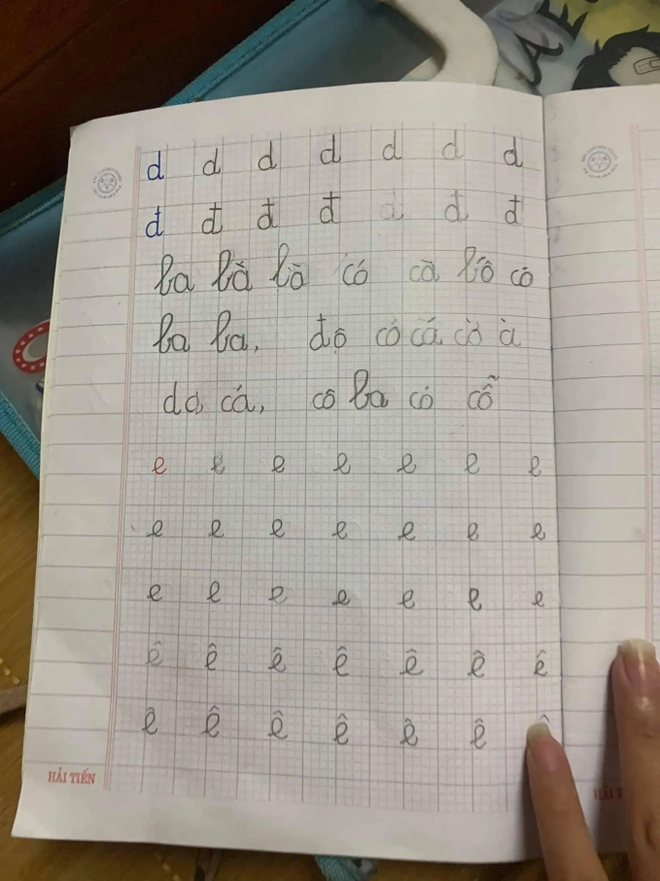 d d d d d d d
đ đ đ đ đ đ đ
ba bà bà có cà bô cô
ba ba, đọ có cá cờ à
da cá, cô ba có cỗ
e e e e e e e
e e e e e e e
e e e e e e e
ê ê ê ê ê ê ê
ê ê ê ê ê ê
HẢI TIẾN